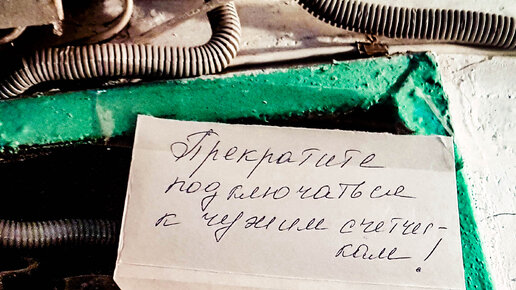 Прекратите
подключаться
к чужим счетчи-
кам!